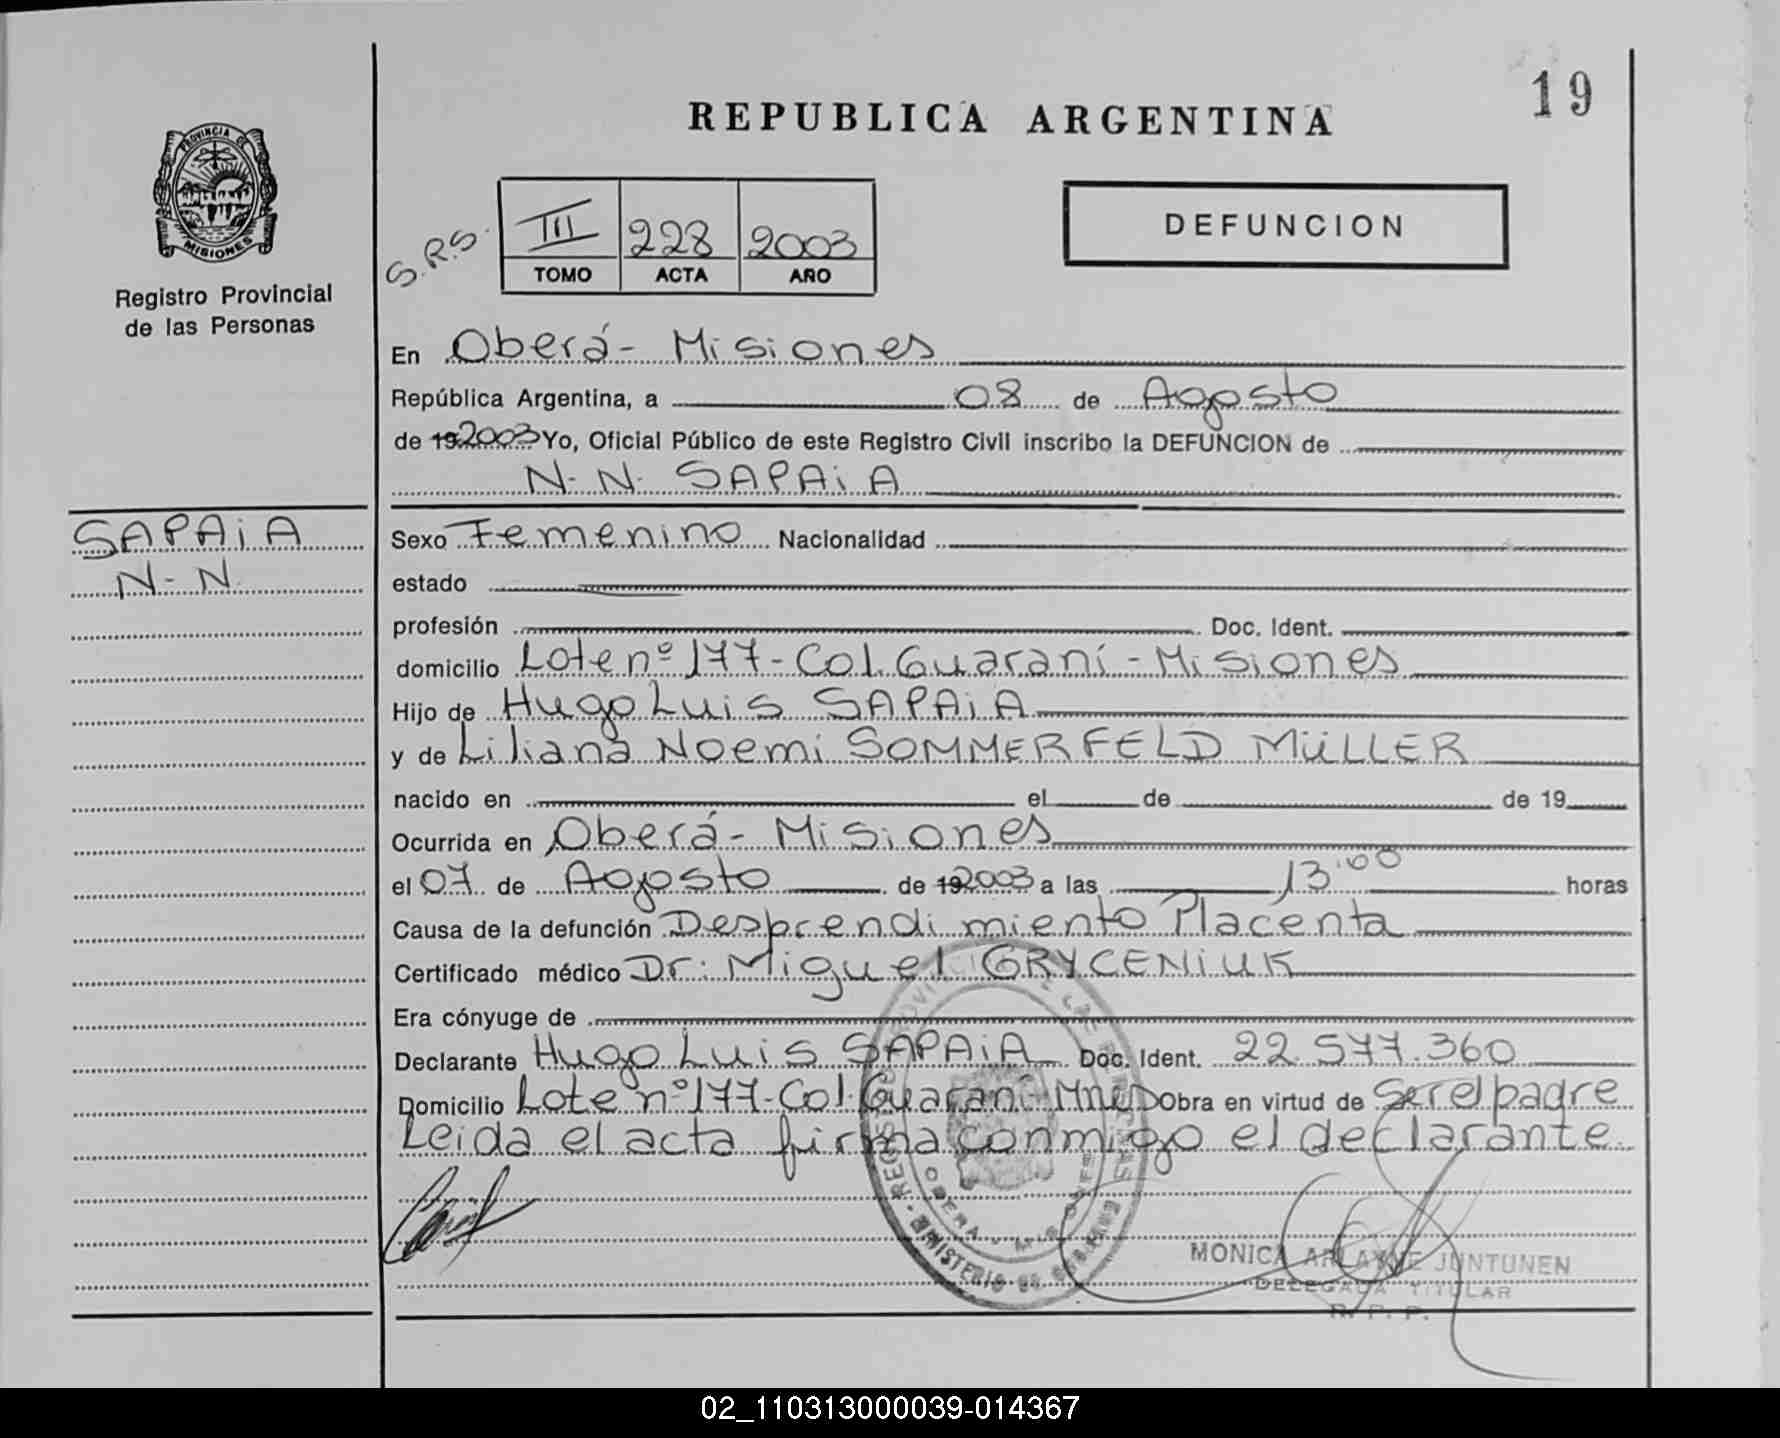 19
REPUBLICA ARGENTINA
PROVINCIA DE
MISIONES
Registro Provincial
de las Personas
S.R.S.
III 228 2003
TOMO ACTA AÑO
DEFUNCION
En Oberá - Misiones
República Argentina, a 08 de Agosto
de 192003 Yo, Oficial Público de este Registro Civil inscribo la DEFUNCION de
N. N. SAPAiA
SAPAiA
N-N.
Sexo Femenino Nacionalidad
estado
profesión Doc. Ident.
domicilio Lote nº 177 - Col. Guaraní - Misiones
Hijo de Hugo Luis SAPAiA
y de Liliana Noemi SOMMERFELD MüLLER
nacido en el de de 19
Ocurrida en Oberá - Misiones
el 07 de Agosto de 192003 a las 13:00 horas
Causa de la defunción Desprendimiento Placenta
Certificado médico Dr: Miguel GRYCENiUK
Era cónyuge de
Declarante Hugo Luis SAPAiA Doc. Ident. 22.577.360
Domicilio Lote nº 177 - Col. Guaraní Mnes Obra en virtud de Ser el padre
Leida el acta firma conmigo el declarante
MONICA ARLAYNE JUNTUNEN
DELEGADA TITULAR
R. P. P.
02_110313000039-014367